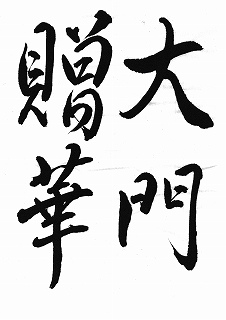 大門
贈華